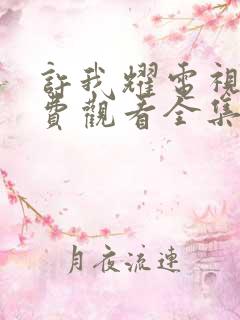 許我耀電視
費觀看全集
月夜流連